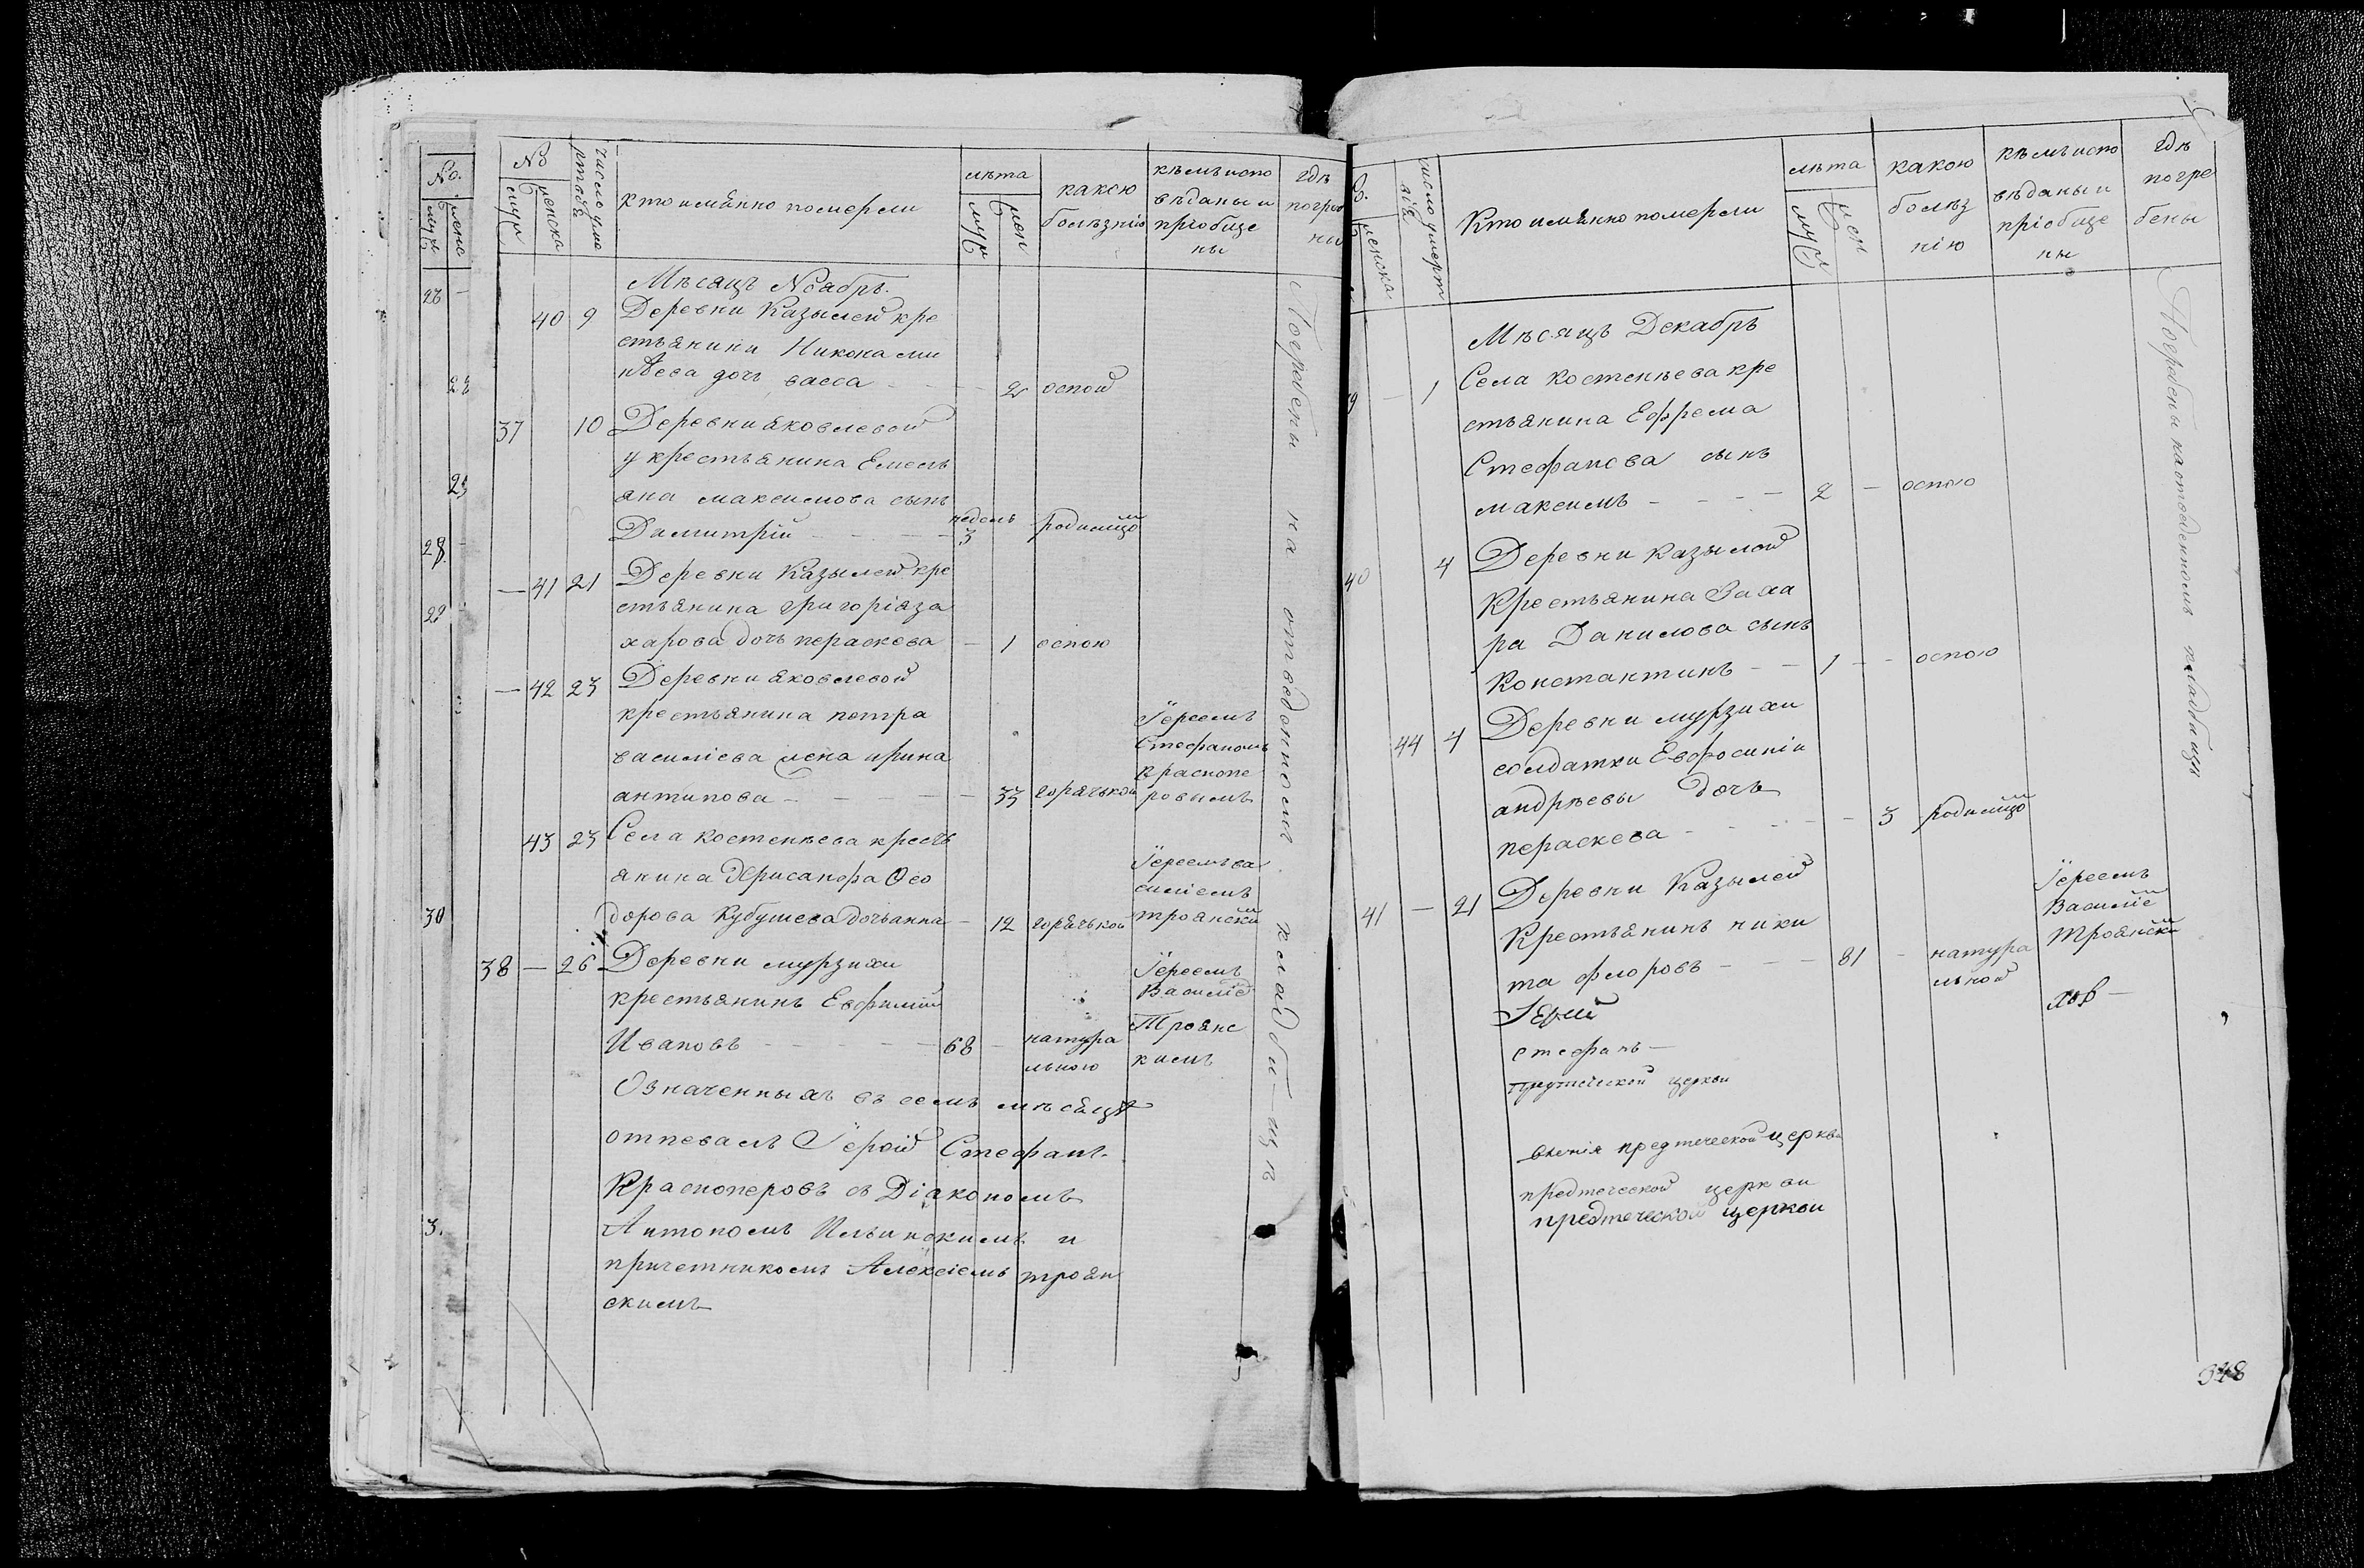 No.
муж
женс
28
28
29
28
29
30
3.
№
муж
женска
число умертвiя
кто имянно померли
лѣта
муж
жен
какою
болѣзнiю
кѣмъ испо
вѣданы и
прiобще
ны
гдѣ
погребе
ны
Мѣсяцъ Ноябрь
40 9 Деревни Казылей кре
стьянина Никона ми
нѣева дочь васса - - - 2 оспой
37 10 Деревни яковлевой
у крестьянина Емель
яна максимова сынъ
Димитрiй - - - недель 3 родимцо
— 41 21 Деревни Казылей кре
стьянина григорiя за
харова дочь пераскева — 1 оспою
— 42 23 Деревни яковлевой
крестьянина петра
василiева жена ирина
антипова - - - 33 горячькой
Iереемъ
Стефаномъ
Краснопе
ровымъ
43 23 Села костенѣева кресть
янина Хрисанфа Ѳео
дорова Кубушева дочь анна — 12 горячькой
Iереемъ ва
силiемъ
троянски
38 — 26 Деревни мурзихи
крестьянинъ Евфимiй
Ивановъ - - - 68 — натура
льною
Iереемъ
Василiе
Троянс
кимъ
Означенныхъ въ семъ мѣсяцѣ
отпевалъ Iерей Стефанъ
Красноперовъ съ Дiакономъ
Антономъ Ильинскимъ и
причетникомъ Алексiемъ троян
скимъ
Погребены на отведенномъ кладбищѣ
№.
женска
число умертвiя
Кто имянно померли
лѣта
муж
жен
какою
болѣз
нiю
кѣмъ испо
вѣданы и
прiобще
ны
гдѣ
погре
бены
Мѣсяцъ Декабрь
39 — 1 Села костенѣева кре
стьянина Ефрема
Стефанова сынъ
максимъ - - - 2 — оспою
40 4 Деревни казылей
Крестьянина Заха
ра Данилова сынъ
Константинъ - - 1 - - оспою
44 4 Деревни мурзихи
солдатки Евфросинiи
андрѣевы дочь
пераскева - - - 3 родимцо
41 — 21 Деревни Казылей
Крестьянинъ ники
та флоровъ - - - 81 - натура
льной
Iереемъ
Василiе
Троянски
Iерей
стефанъ —
церкви
предтеческой церкви
предтеческой церкви
предтеческой церкви
Погребены на отведенномъ кладбищи
348